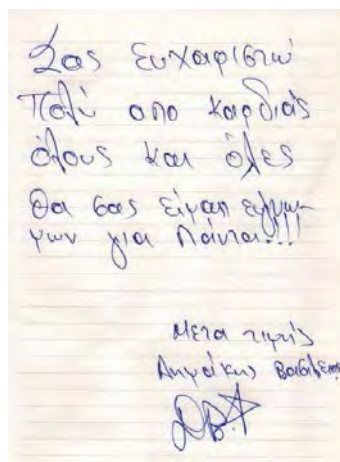 Σας ευχαριστώ
Πολύ απο καρδιάς
όλους και όλες
Θα σας είμαι ευγνώ-
μων για πάντα!!!
Μετα τιμής
Δημάκης Βασίλειος